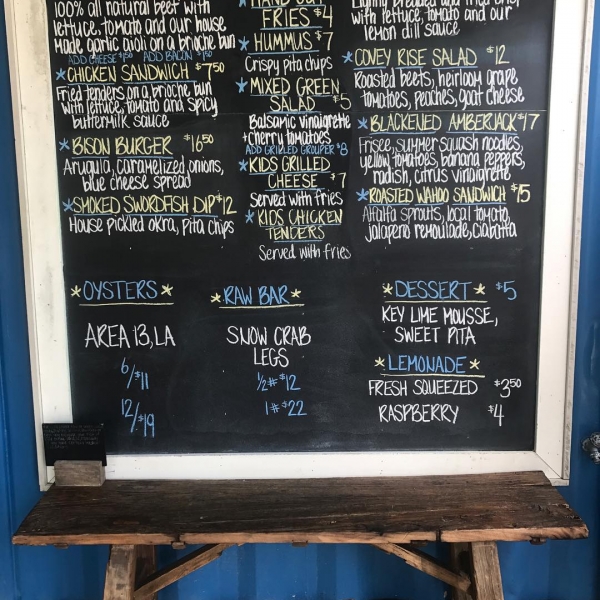 100% all natural beef with
lettuce, tomato and our house
made garlic aioli on a brioche bun
ADD CHEESE $1.50 ADD BACON $1.50
*CHICKEN SANDWICH $7.50
Fried tenders on a brioche bun
with lettuce, tomato and spicy
buttermilk sauce
*BISON BURGER $16.50
Arugula, caramelized onions,
blue cheese spread
*SMOKED SWORDFISH DIP $12
House pickled okra, pita chips
*HAND CUT
FRIES $4
*HUMMUS $7
Crispy pita chips
*MIXED GREEN
SALAD $5
Balsamic vinaigrette
+ cherry tomatoes
ADD GRILLED GROUPER $8
*KIDS GRILLED
CHEESE $7
Served with fries
*KIDS CHICKEN
TENDERS
Served with fries
Lightly breaded and fried crisp
with lettuce, tomato and our
lemon dill sauce
*COVEY RISE SALAD $12
Roasted beets, heirloom grape
tomatoes, peaches, goat cheese
*BLACKENED AMBERJACK $17
Frisee, summer squash noodles,
yellow tomatoes, banana peppers,
radish, citrus vinaigrette
*ROASTED WAHOO SANDWICH $15
Alfalfa sprouts, local tomato,
jalapeno remoulade, ciabatta
*OYSTERS*
AREA 13, LA
6/$11
12/$19
*RAW BAR*
SNOW CRAB
LEGS
1/2# $12
1# $22
*DESSERT* $5
KEY LIME MOUSSE,
SWEET PITA
*LEMONADE*
FRESH SQUEEZED $3.50
RASPBERRY $4